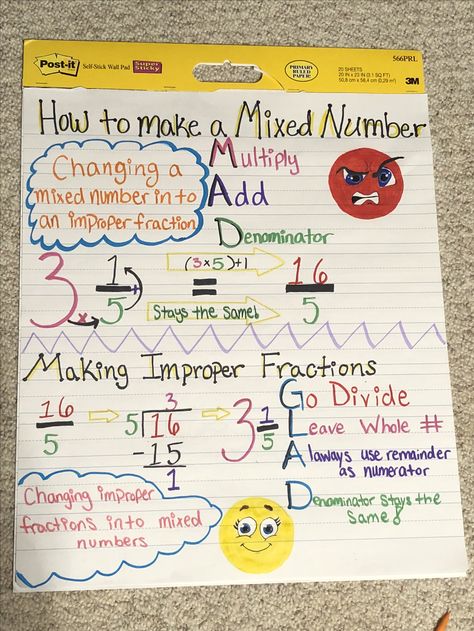 566PRL
Post-it
Self-Stick Wall Pad
Super Sticky
PRIMARY RULED PAPER
20 SHEETS
20 IN x 23 IN (3.1 SQ FT)
50,8 cm x 58,4 cm (0,29 m²)
3M
How to make a Mixed Number
Changing a
mixed number in to
an improper fraction
Multiply
Add
Denominator
3 1/5 x +
(3x5)+1
=
Stays the Same!
16/5
Making Improper Fractions
16/5
3
5 16
-15
1
3 1/5
Go Divide
Leave Whole #
Alaways use remainder
as numerator
Denominator Stays the
Same!
Changing improper
fractions into mixed
numbers